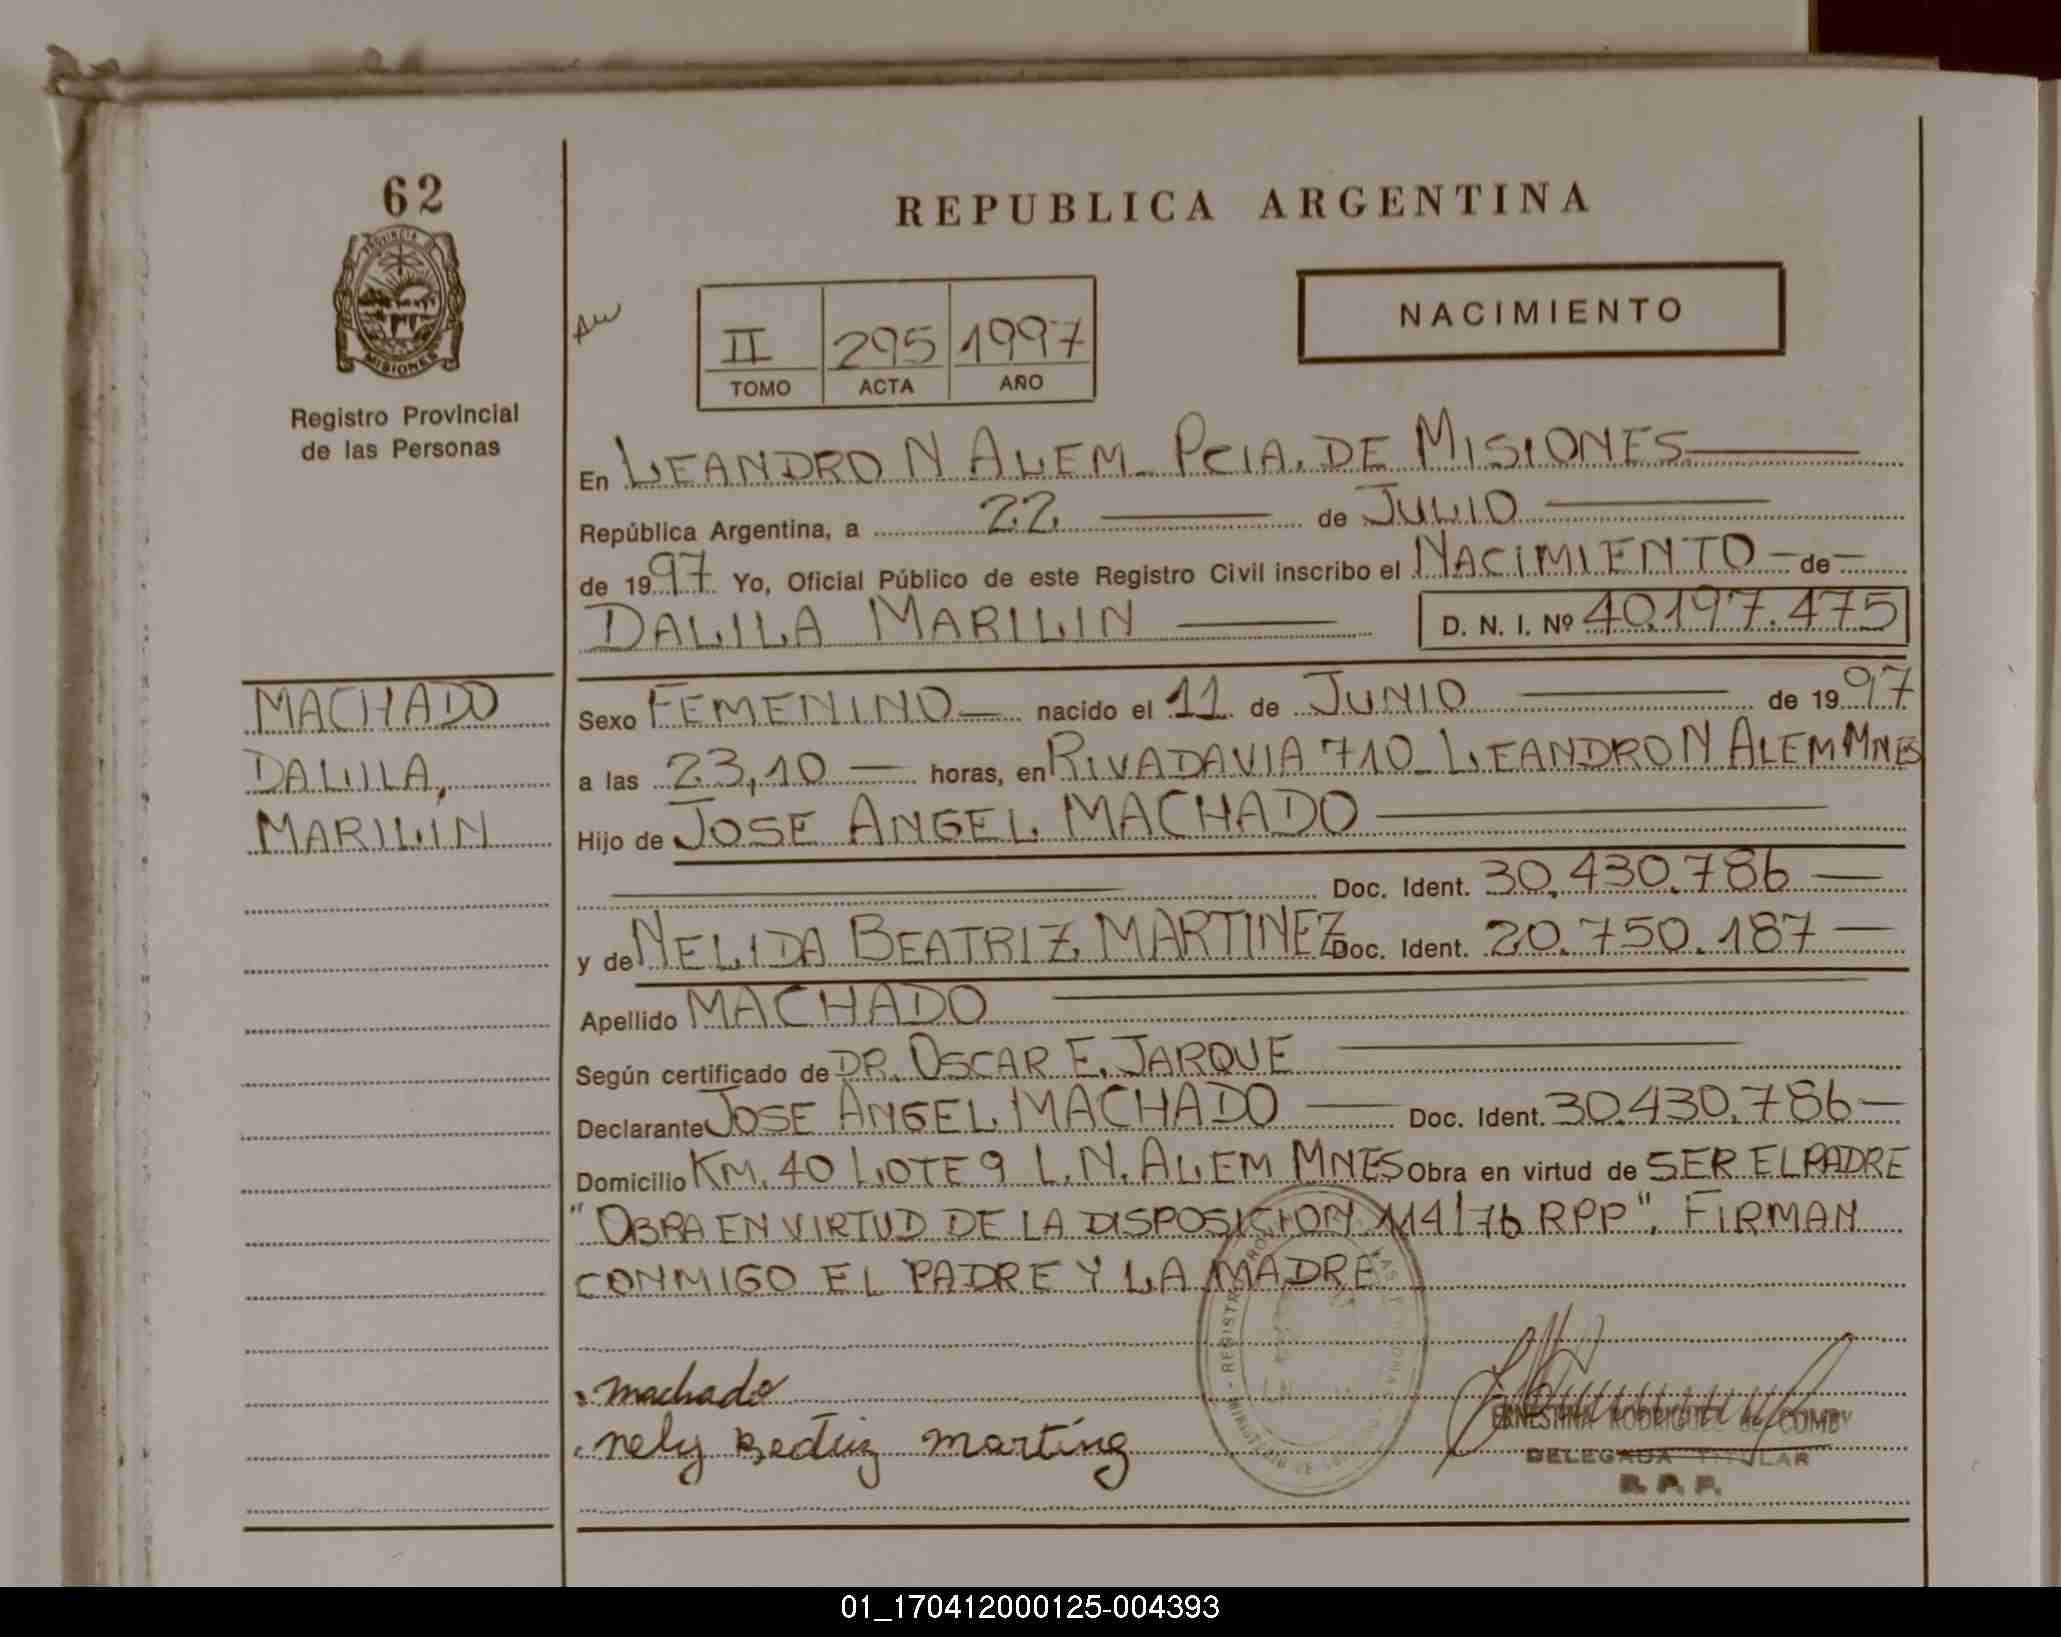 62
PROVINCIA DE
MISIONES
Registro Provincial
de las Personas
REPUBLICA ARGENTINA
II 295 1997
TOMO ACTA AÑO
NACIMIENTO
En LEANDRO N ALEM - PCIA. DE MISIONES
República Argentina, a 22 de JULIO
de 1997 Yo, Oficial Público de este Registro Civil inscribo el NACIMIENTO - de -
DALILA MARILIN D. N. I. Nº 40.197.475
MACHADO
DALILA,
MARILIN
Sexo FEMENINO nacido el 11 de JUNIO de 1997
a las 23,10 horas, en RIVADAVIA 710 - LEANDRO N ALEM MNES
Hijo de JOSE ANGEL MACHADO
Doc. Ident. 30.430.786
y de NELIDA BEATRIZ MARTINEZ Doc. Ident. 20.750.187
Apellido MACHADO
Según certificado de DR. OSCAR E. JARQUE
Declarante JOSE ANGEL MACHADO Doc. Ident. 30.430.786
Domicilio KM. 40 LOTE 9 L.N. ALEM MNES Obra en virtud de SER EL PADRE
"OBRA EN VIRTUD DE LA DISPOSICION 114/76 RPP". FIRMAN
CONMIGO EL PADRE Y LA MADRE
machado
nely Beatriz martinez
ERNESTINA RODRIGUEZ de COMBY
DELEGADA TITULAR
R. P. P.
01_170412000125-004393